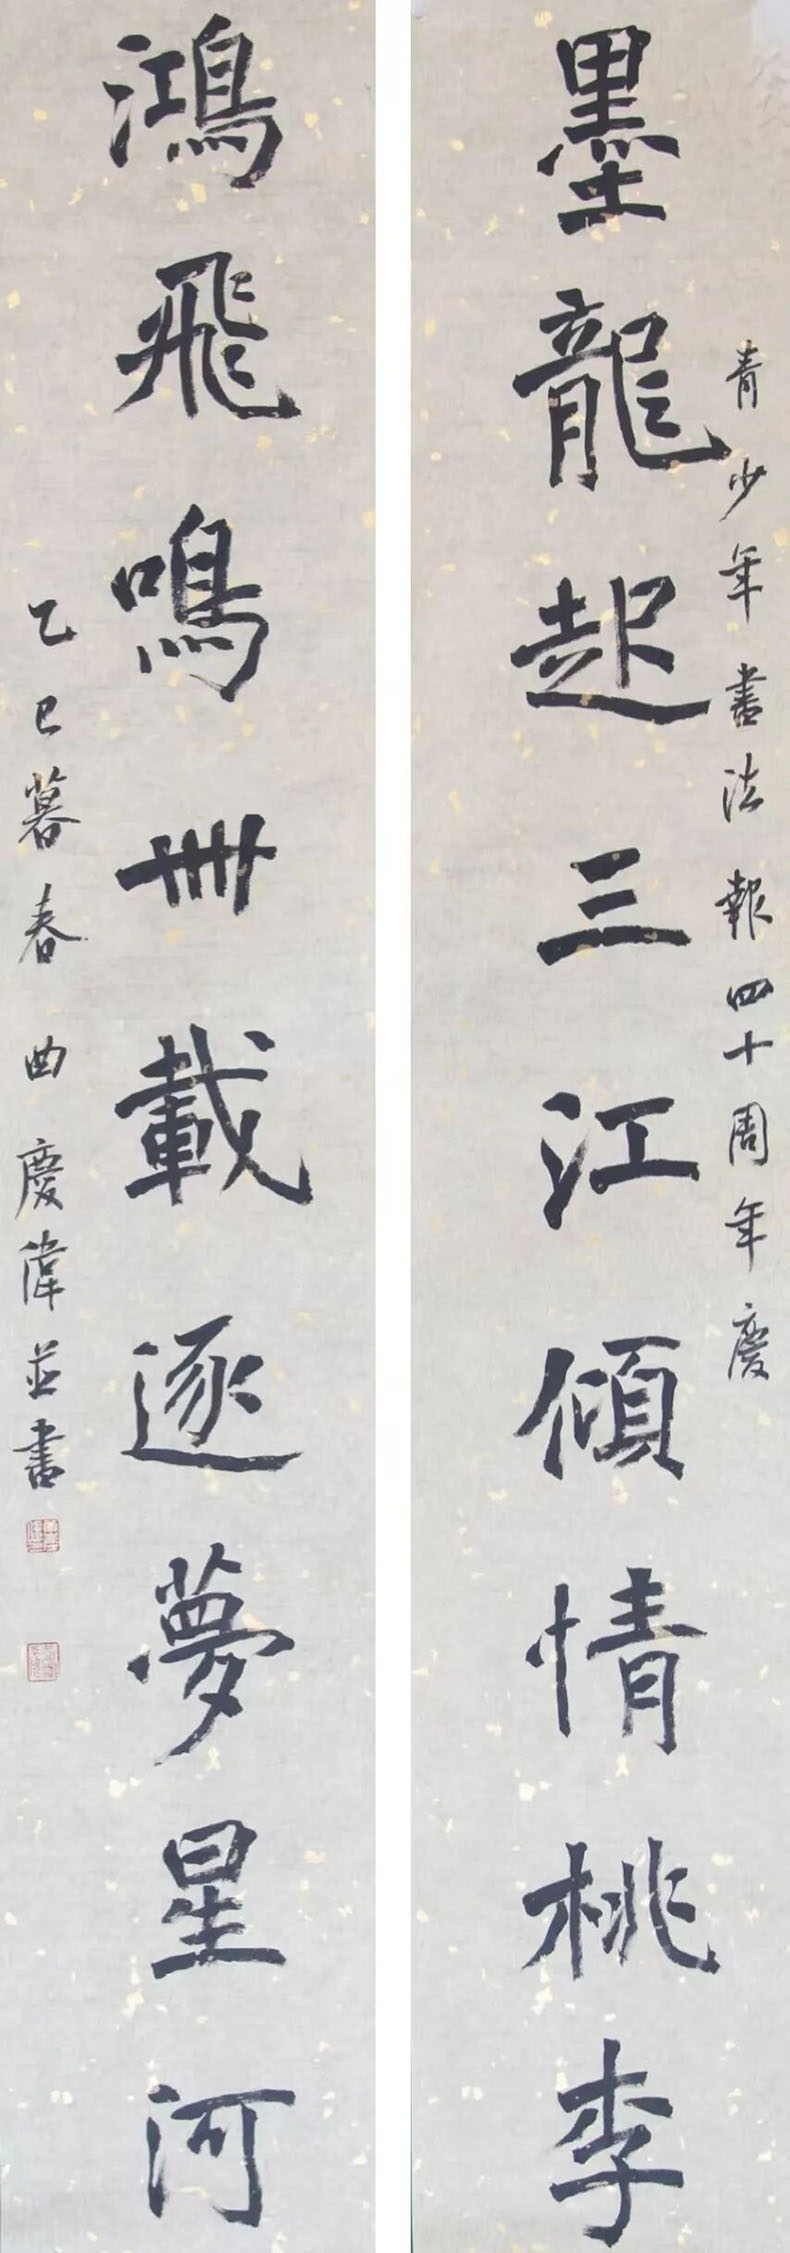 青少年書法報四十周年慶
墨龍起三江傾情桃李
鴻飛鳴卌載逐夢星河
乙巳暮春 曲慶偉並書